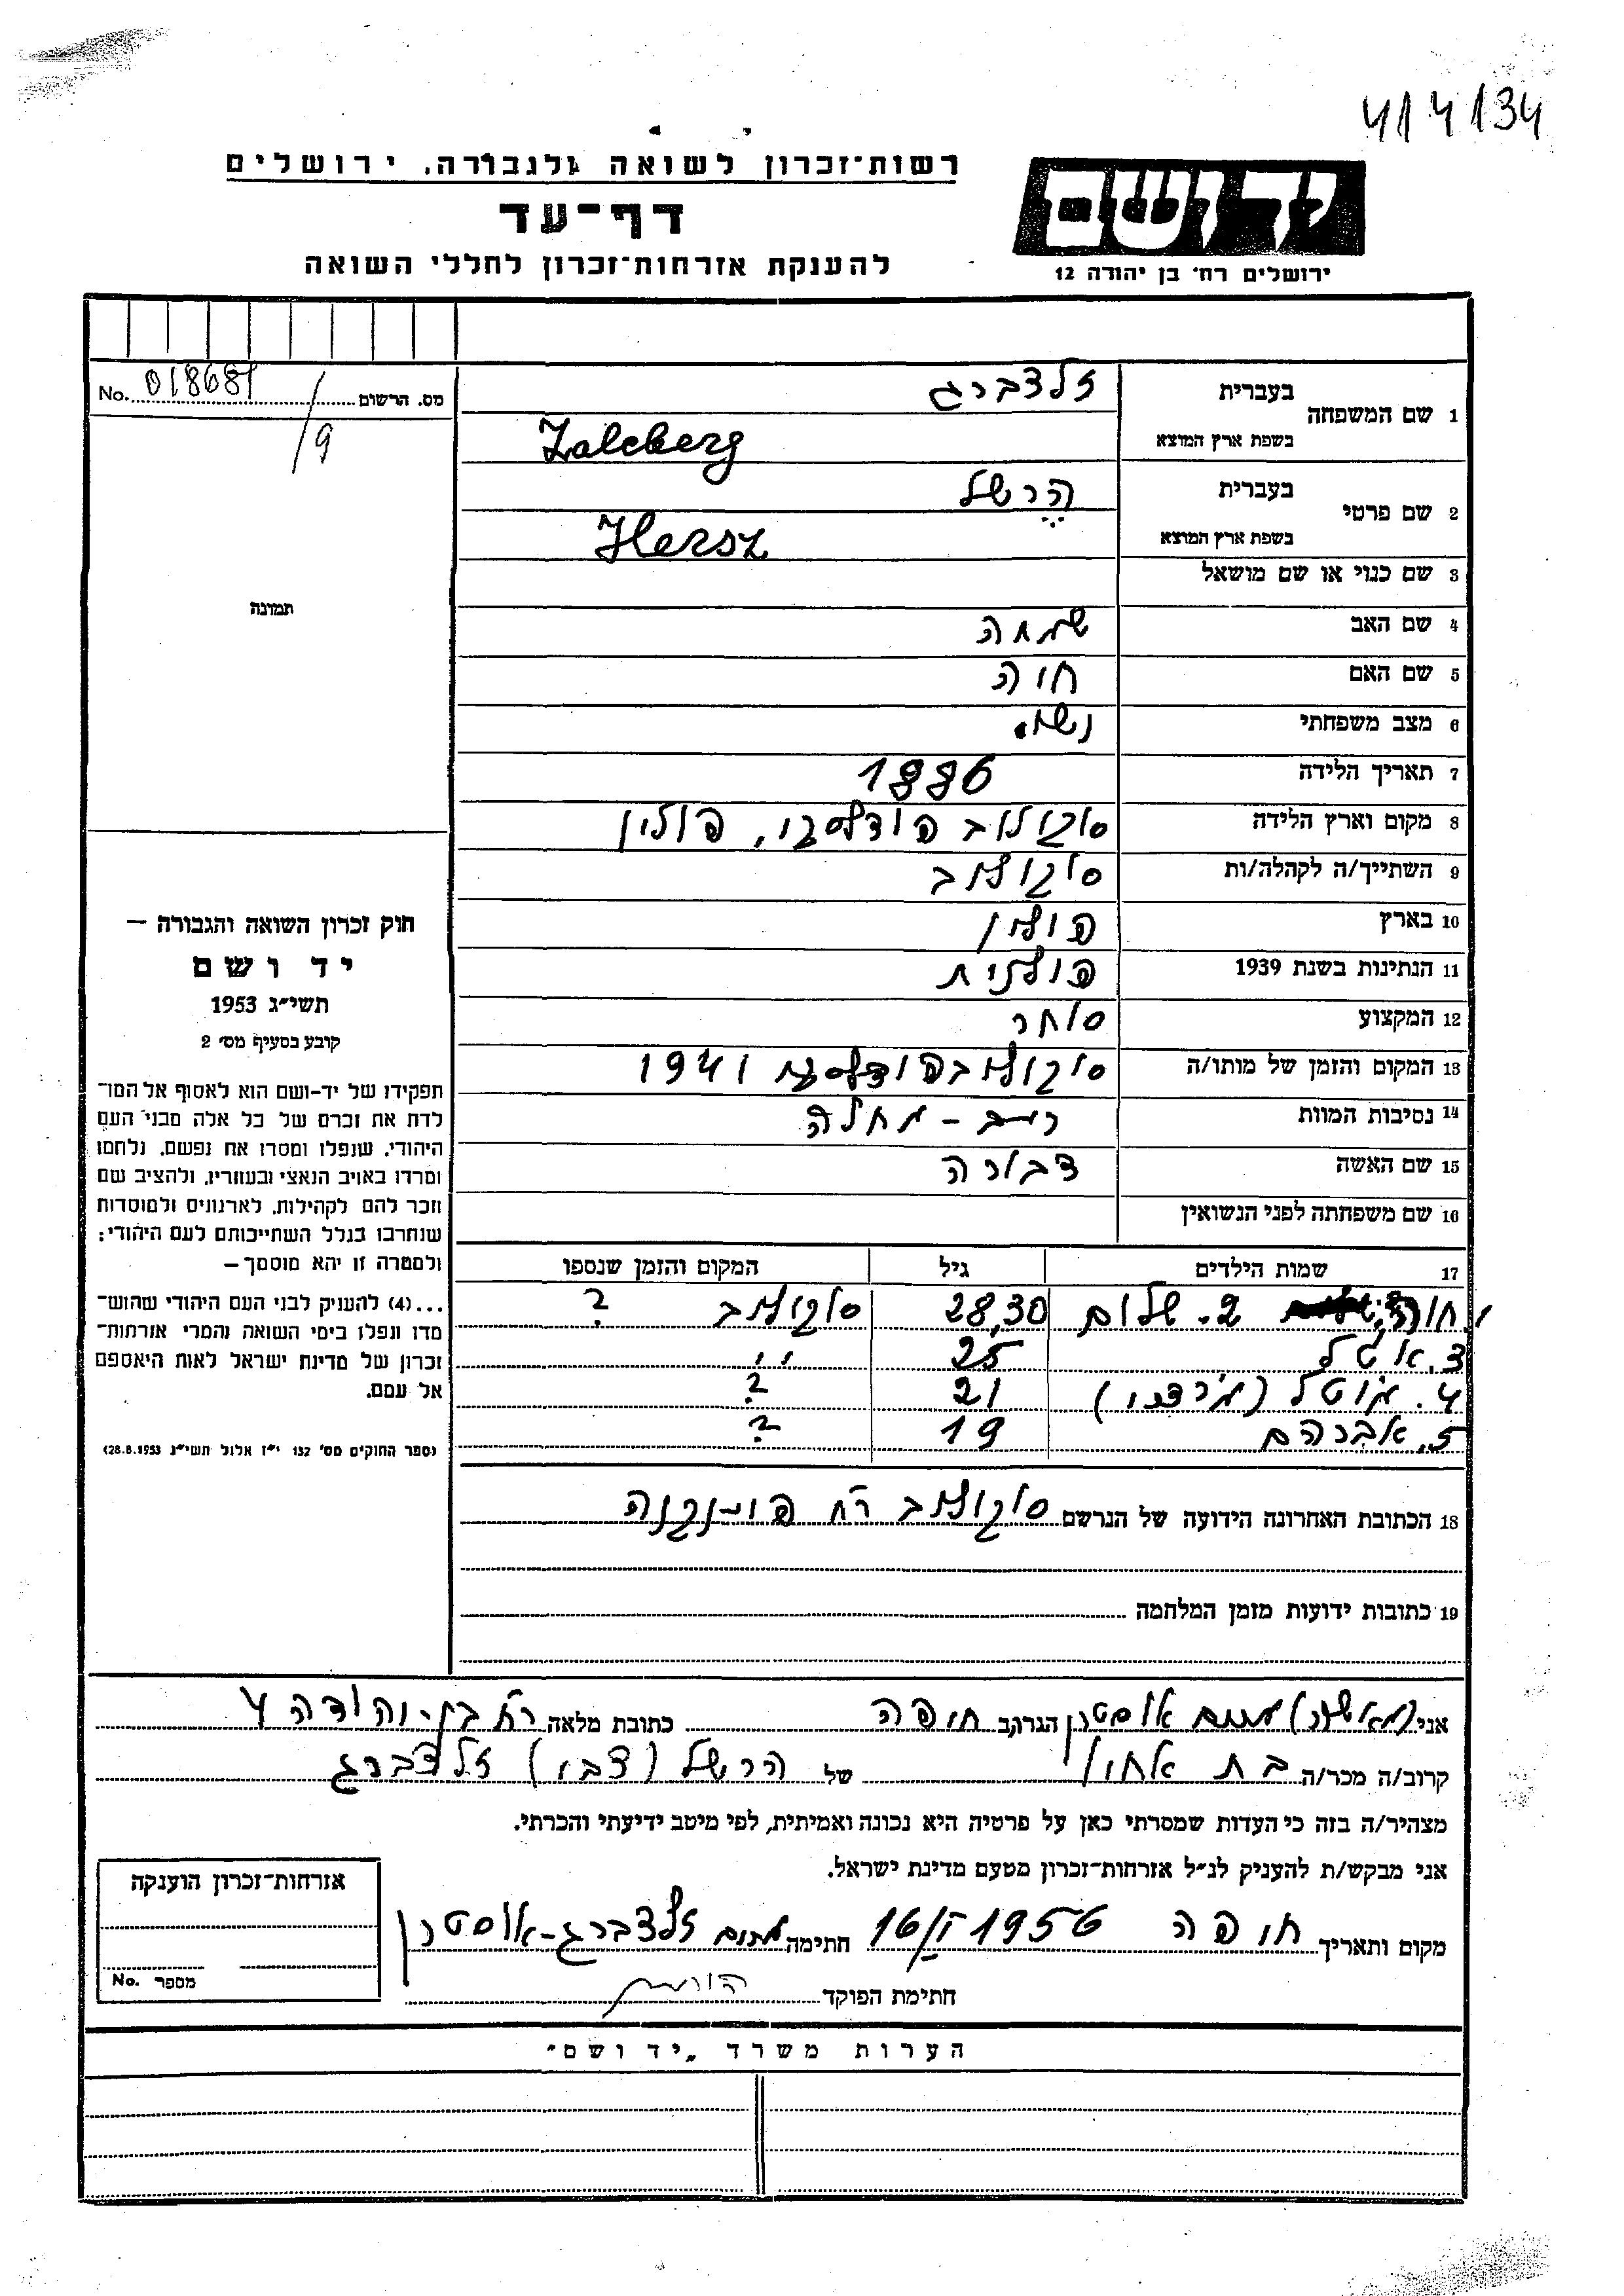 414134
רשות־זכרון לשואה ולגבורה, ירושלים
דף־עד
להענקת אזרחות־זכרון לחללי השואה
יד ושם
ירושלים רח׳ בן יהודה 12
מס. הרשום 018681 No.
/9
1 שם המשפחה
בעברית זלצברג
בשפת ארץ המוצא Zalcberg
2 שם פרטי
בעברית הרשל
בשפת ארץ המוצא Hersz
3 שם כנוי או שם מושאל
4 שם האב שמחה
5 שם האם חוה
6 מצב משפחתי נשוי
7 תאריך הלידה 1886
8 מקום וארץ הלידה סוקולוב פודלסקי, פולין
9 השתייך/ה לקהלה/ות סוקולוב
10 בארץ פולין
11 הנתינות בשנת 1939 פולנית
12 המקצוע סוחר
13 המקום והזמן של מותו/ה סוקולוב פודלסקי 1941
14 נסיבות המוות רעב - מחלה
15 שם האשה דבורה
16 שם משפחתה לפני הנשואין
17 שמות הילדים גיל המקום והזמן שנספו
1. חוה 2. שלום 28,30 סוקולוב ?
3. אטל 25 ,,
4. מוטל (מרדכי) 21 ?
5. אברהם 19 ?
18 הכתובת האחרונה הידועה של הנרשם סוקולוב רח׳
19 כתובות ידועות מזמן המלחמה
תמונה
חוק זכרון השואה והגבורה —
יד ושם
תשי״ג 1953
קובע בסעיף מס׳ 2
תפקידו של יד-ושם הוא לאסוף אל המו־
לדת את זכרם של כל אלה מבני העם
היהודי, שנפלו ומסרו את נפשם, נלחמו
ומרדו באויב הנאצי ובעוזריו, ולהציב שם
וזכר להם לקהילות, לארגונים ולמוסדות
שנחרבו בגלל השתייכותם לעם היהודי;
ולמטרה זו יהא מוסמך —
...(4) להעניק לבני העם היהודי שהוש־
מדו ונפלו בימי השואה והמרי אזרחות־
זכרון של מדינת ישראל לאות היאספם
אל עמם.
(ספר החוקים מס׳ 132 י״ז אלול תשי״ג 28.8.1953)
אני אוסטרן הגר/ה ב חיפה כתובת מלאה רח׳ בן-יהודה 4
קרוב/ה מכר/ה בת אחיו של הרשל (צבי) זלצברג
מצהיר/ה בזה כי העדות שמסרתי כאן על פרטיה היא נכונה ואמיתית, לפי מיטב ידיעתי והכרתי.
אני מבקש/ת להעניק לנ״ל אזרחות־זכרון מטעם מדינת ישראל.
מקום ותאריך חיפה 16/V 1956 חתימה זלצברג-אוסטרן
חתימת הפוקד
אזרחות־זכרון הוענקה
מספר No.
הערות משרד „יד ושם״